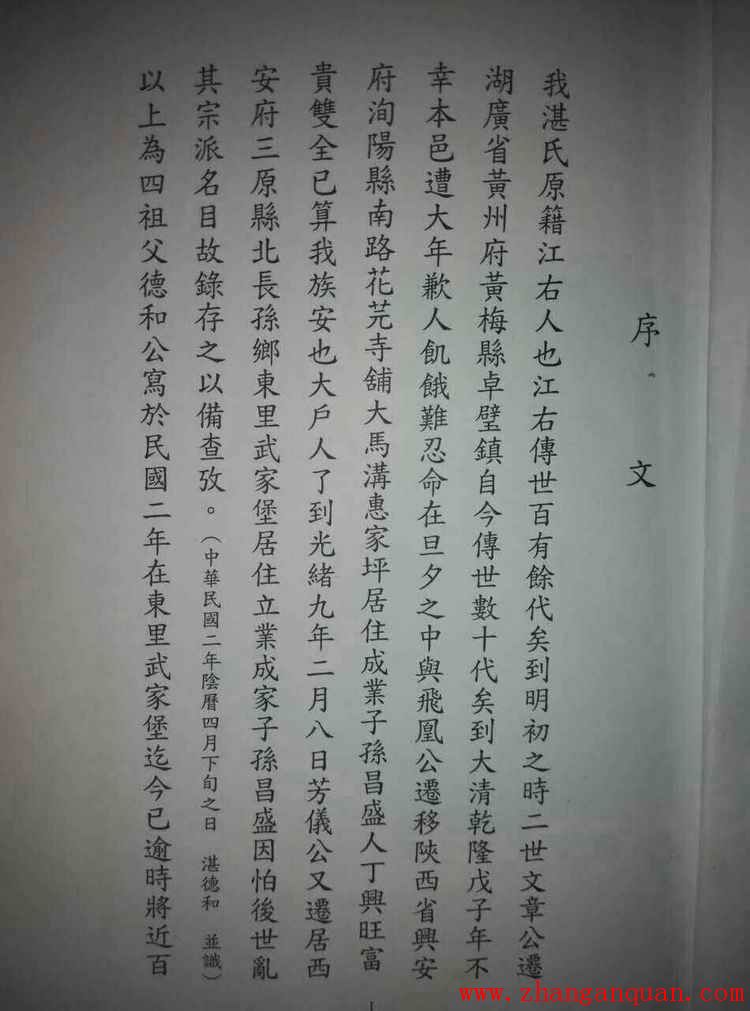 序文
我湛氏原籍江右人也江右傳世百有餘代矣到明初之時二世文章公遷
湖廣省黃州府黃梅縣卓壁鎮自今傳世數十代矣到大清乾隆戊子年不
幸本邑遭大年歉人飢餓難忍命在旦夕之中與飛凰公遷移陝西省興安
府洵陽縣南路花芫寺舖大馬溝惠家坪居住成業子孫昌盛人丁興旺富
貴雙全已算我族安也大戶人了到光緒九年二月八日芳儀公又遷居西
安府三原縣北長孫鄉東里武家堡居住立業成家子孫昌盛因怕後世亂
其宗派名目故錄存之以備查攷。(中華民國二年陰曆四月下旬之日 湛德和 並識)
以上為四祖父德和公寫於民國二年在東里武家堡迄今已逾時將近百
1
www.zhanganquan.com